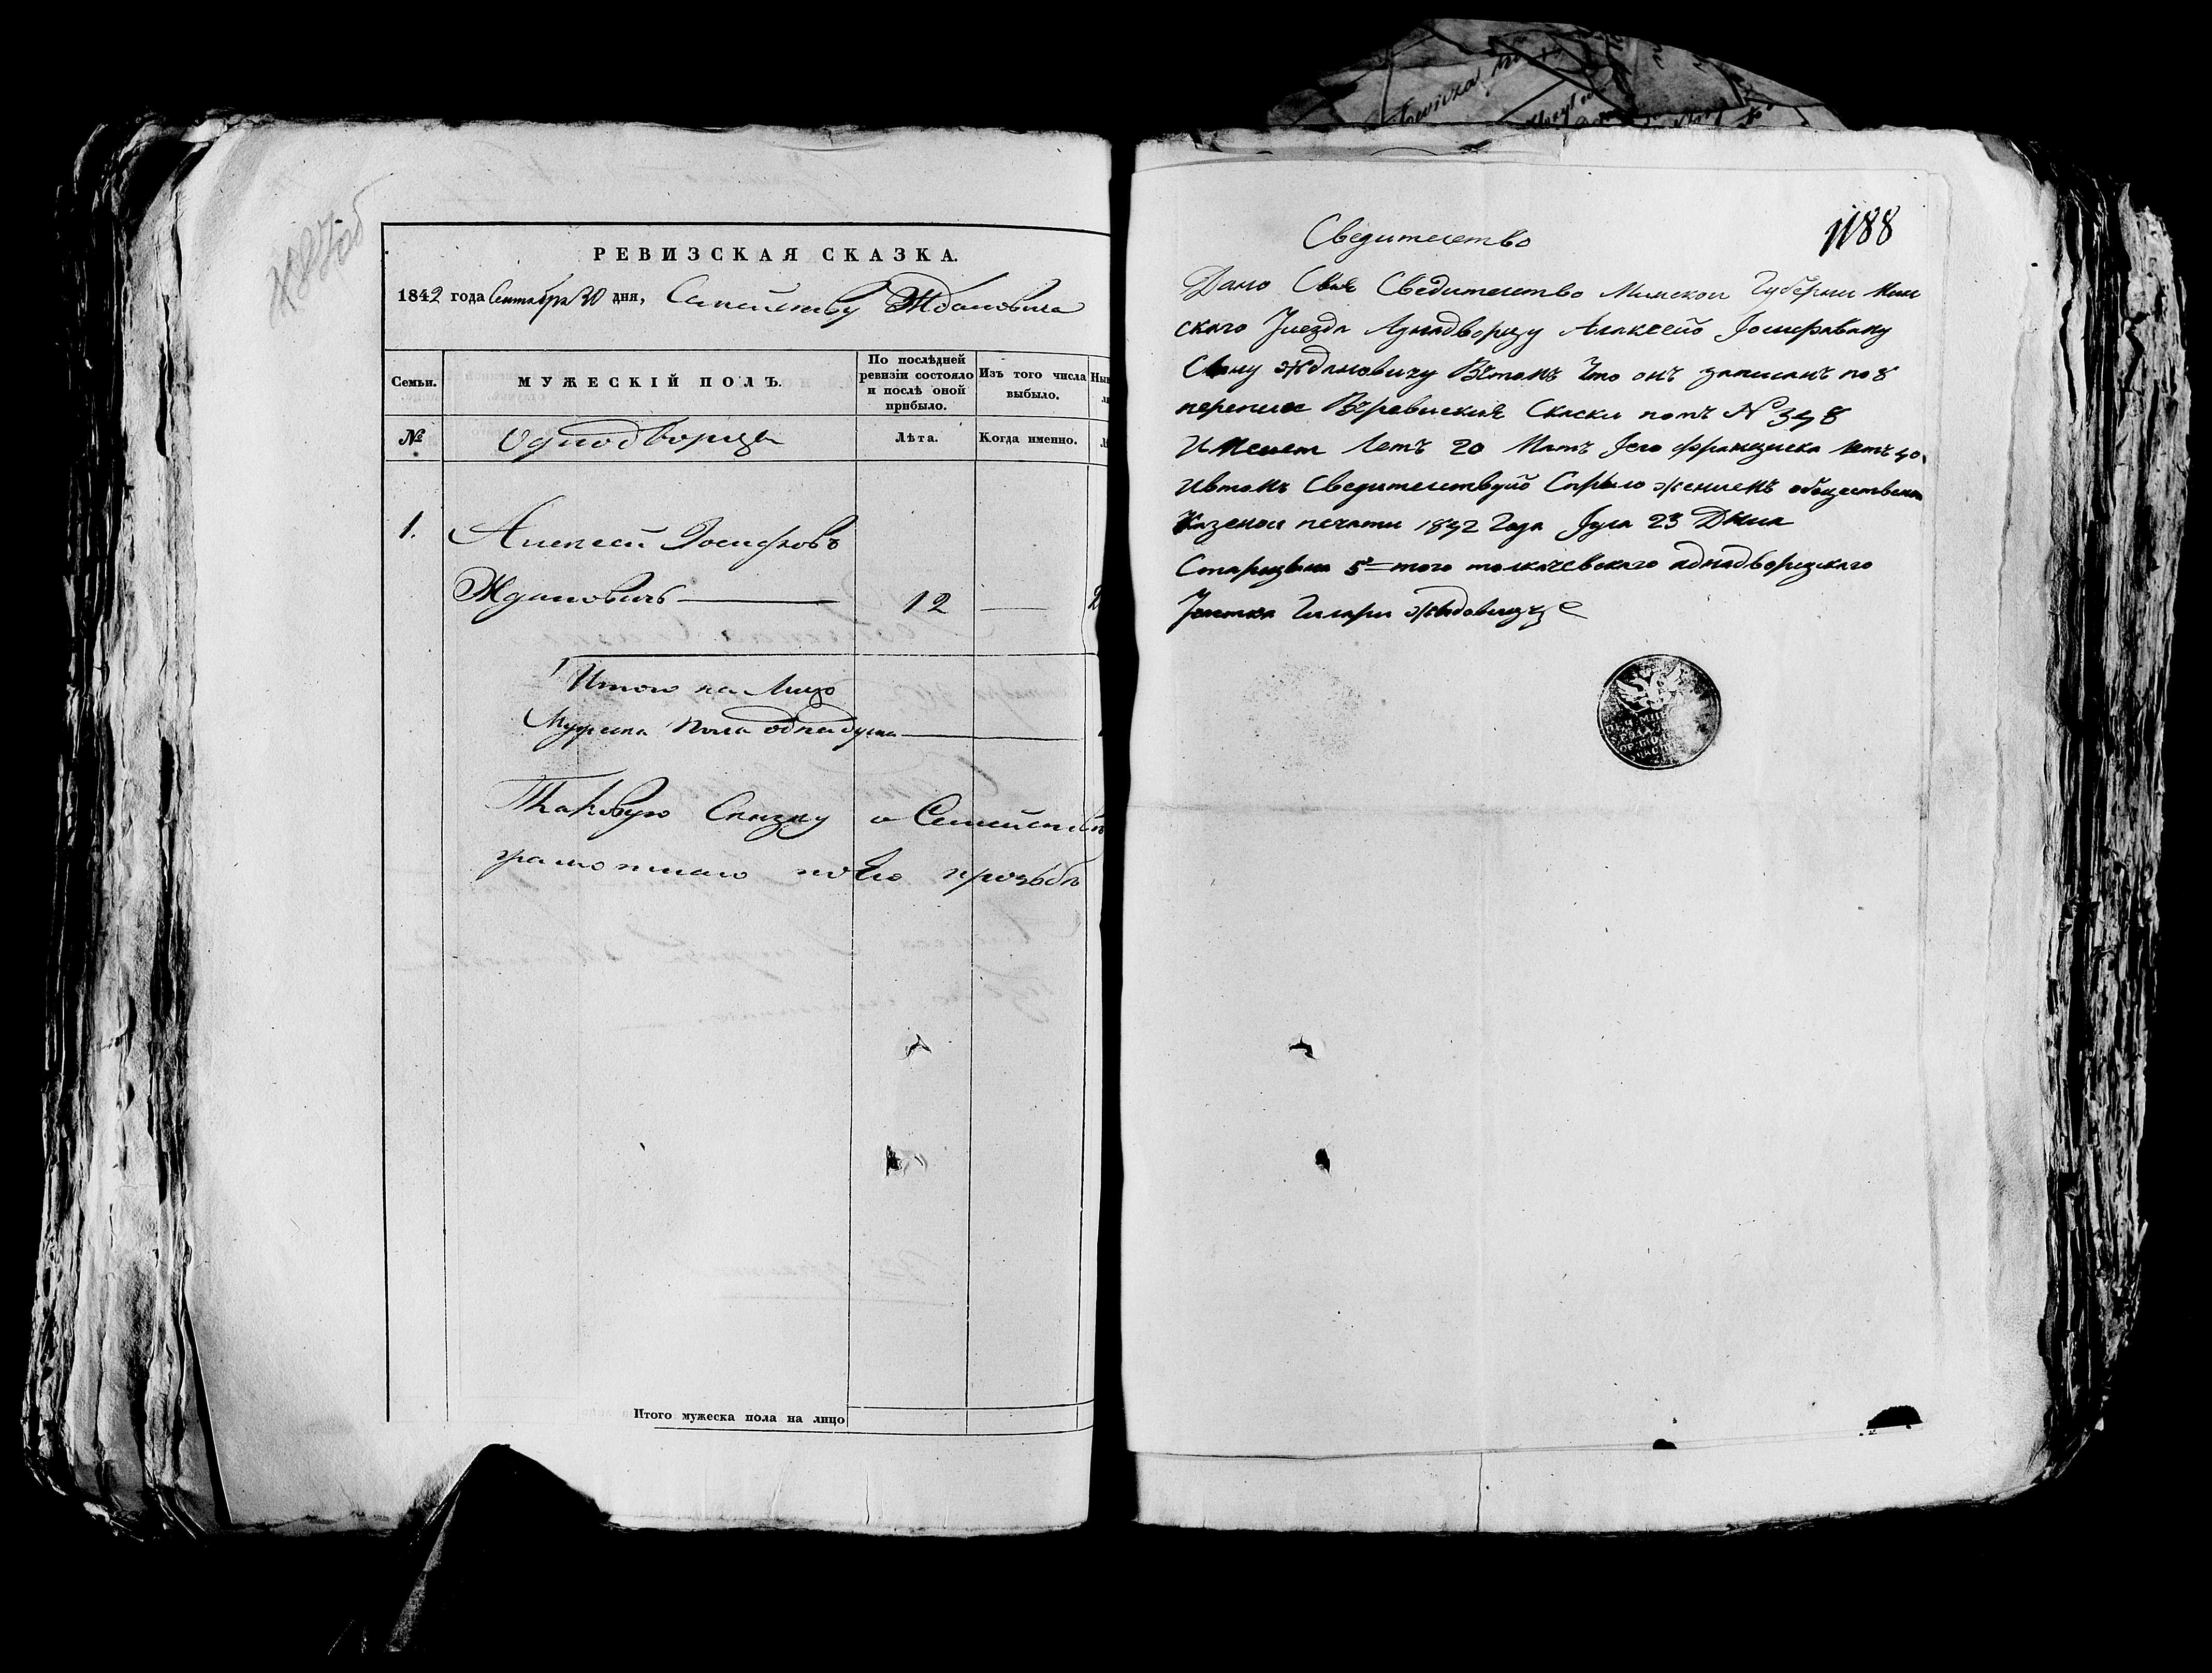 РЕВИЗСКАЯ СКАЗКА.
1842 года Сентября 20 дня, Ждановича
Семьи.
МУЖЕСКІЙ ПОЛЪ.
По послѣдней ревизіи состояло и послѣ оной прибыло.
Изъ того числа выбыло.
№
Однодворцы
Лѣта.
Когда именно.
1.
Алексей Іосифовъ
Ждановичъ
12
Итого на Лицо
Мужеска Пола одна душа
Таковую Сказку о Семействе
грамотнаго по Его прозьбѣ
Итого мужеска пола на лицо
1188
Сведителство
Дано Свѣдителство Минскои Губернии Мин
скаго Уезда Аднадворцу Алаксею Іосифавичу
Сыну Ждановичу Вътомъ Что онъ записанъ по 8
переписе Въревиския Скаски потъ № 398
Имеет Летъ 20 Матъ Јего Францишка летъ 40
Ивтомъ Сведителствую Сприложениемъ обществено
Казенои печати 1842 Года Јула 23 Дниа
5=того толкачевскаго аднадворцкаго
Гилари